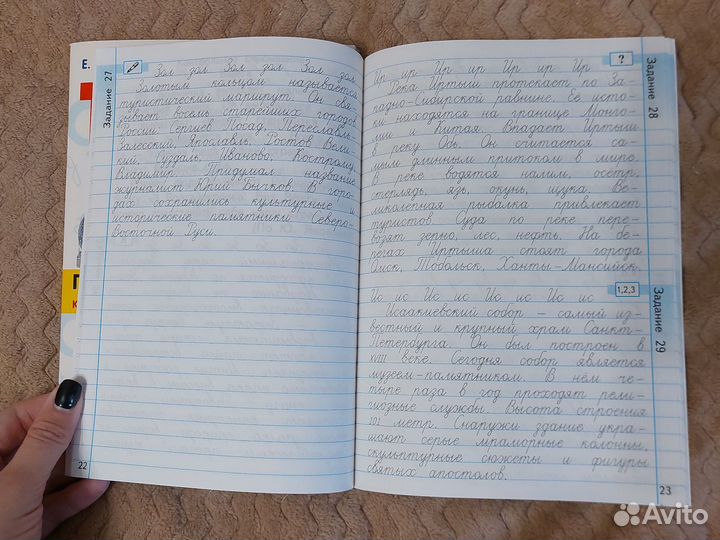 Е.
Задание 27
Зол зол Зол зол Зол зол
Золотым кольцом называется
туристический маршрут. Он свя-
зывает восемь старейших городов
России: Сергиев Посад, Переславль-
Залесский, Ярославль, Ростов Вели-
кий, Суздаль, Иваново, Кострому,
Владимир. Придумал название
журналист Юрий Бычков. В горо-
дах сохранились культурные и
исторические памятники Северо-
Восточной Руси.
22
?
Задание 28
Ир ир Ир ир Ир ир Ир
Река Иртыш протекает по За-
падно-Сибирской равнине. Её исто-
ки находятся на границе Монго-
лии и Китая. Впадает Иртыш
в реку Обь. Он считается са-
мым длинным притоком в мире.
В реке водятся налим, осётр,
стерлядь, язь, окунь, щука. Ве-
ликолепная рыбалка привлекает
туристов. Суда по реке пере-
возят зерно, лес, нефть. На бе-
регах Иртыша стоят города
Омск, Тобольск, Ханты-Мансийск.
1,2,3
Задание 29
Ис ис Ис ис Ис ис Ис ис
Исаакиевский собор – самый из-
вестный и крупный храм Санкт-
Петербурга. Он был построен в
XVIII веке. Сегодня собор является
музеем-памятником. В нём че-
тыре раза в год проходят рели-
гиозные службы. Высота строения
101 метр. Снаружи здание укра-
шают серые мраморные колонны,
скульптурные сюжеты и фигуры
святых апостолов.
23
Avito